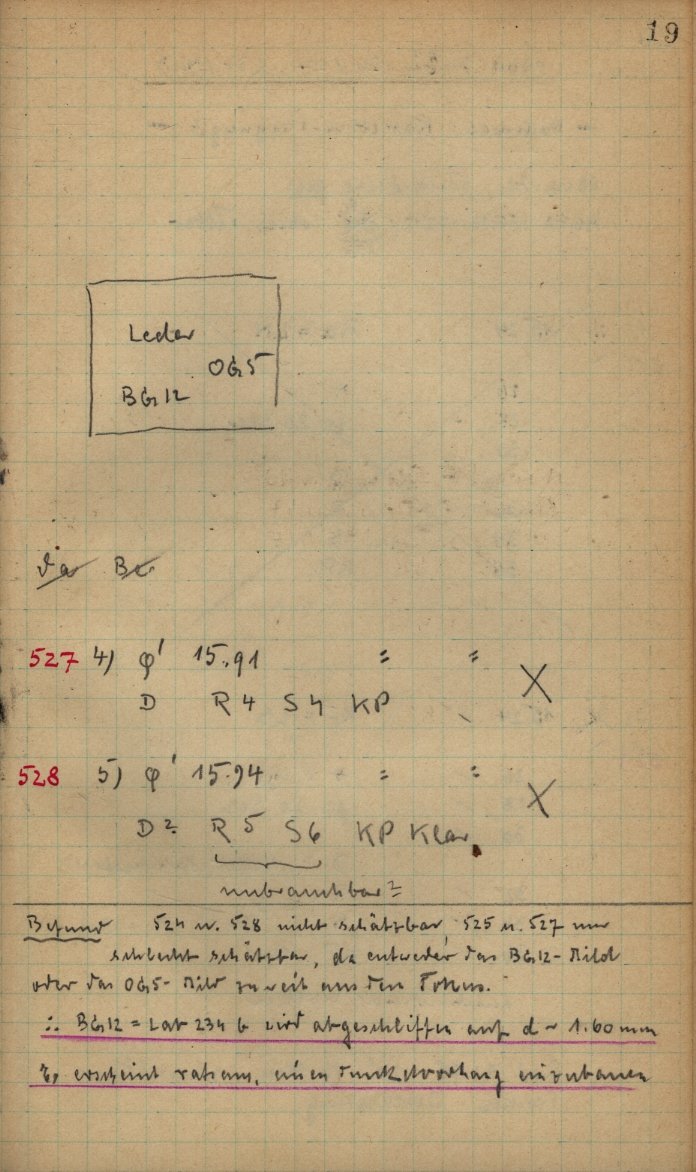 19
Leder
OG5
BG12
527 4) φ' 15.91 " "
D R4 S4 KP X
528 5) φ' 15.94 " "
D? R5 S6 KP Klar X
unbrauchbar?
Befund 524 u. 528 nicht schätzbar 525 u. 527 nur
schlecht schätzbar, da entweder das BG12-Bild
oder das OG5-Bild zu weit aus dem Fokus.
∴ BG12 = 234 b wird abgeschliffen auf d ~ 1.60 mm
Es erscheint ratsam, einen Dunkelvorhang einzubauen